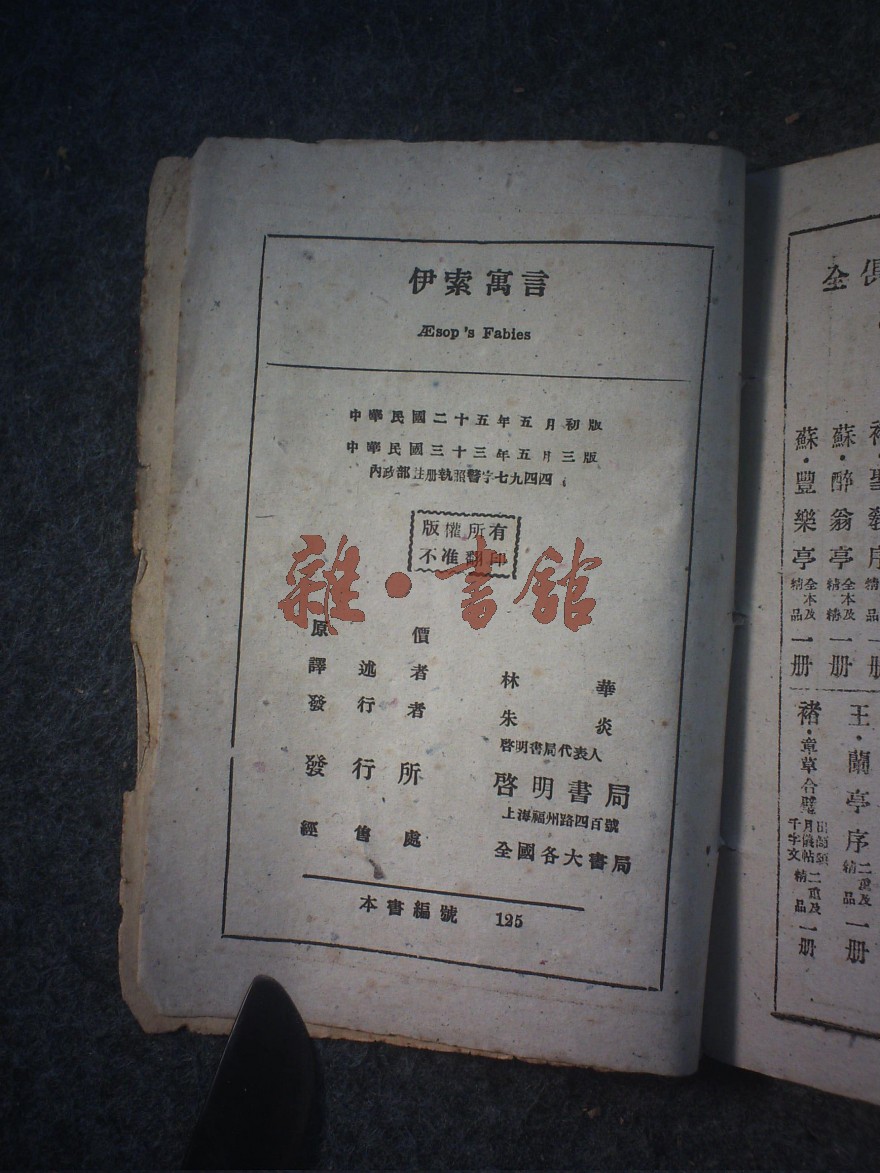 伊索寓言
Æsop's Fabies
中華民國二十五年五月初版
中華民國三十三年五月三版
內政部注册執照警字七九四四
版權所有
不准翻印
雜·書館
原價
譯述者 林華
發行者 朱炎
啓明書局代表人
發行所 啓明書局
上海福州路四百號
經售處 全國各大書局
本書編號 125
全
蘇·豐樂亭 全本及精品 一册
蘇·醉翁亭 全本及精 一册
聖教序 精品 一册
王·蘭亭序 二寬及精品 一册
褚·章草合璧 月儀帖 千字文 二寬及精品 一册